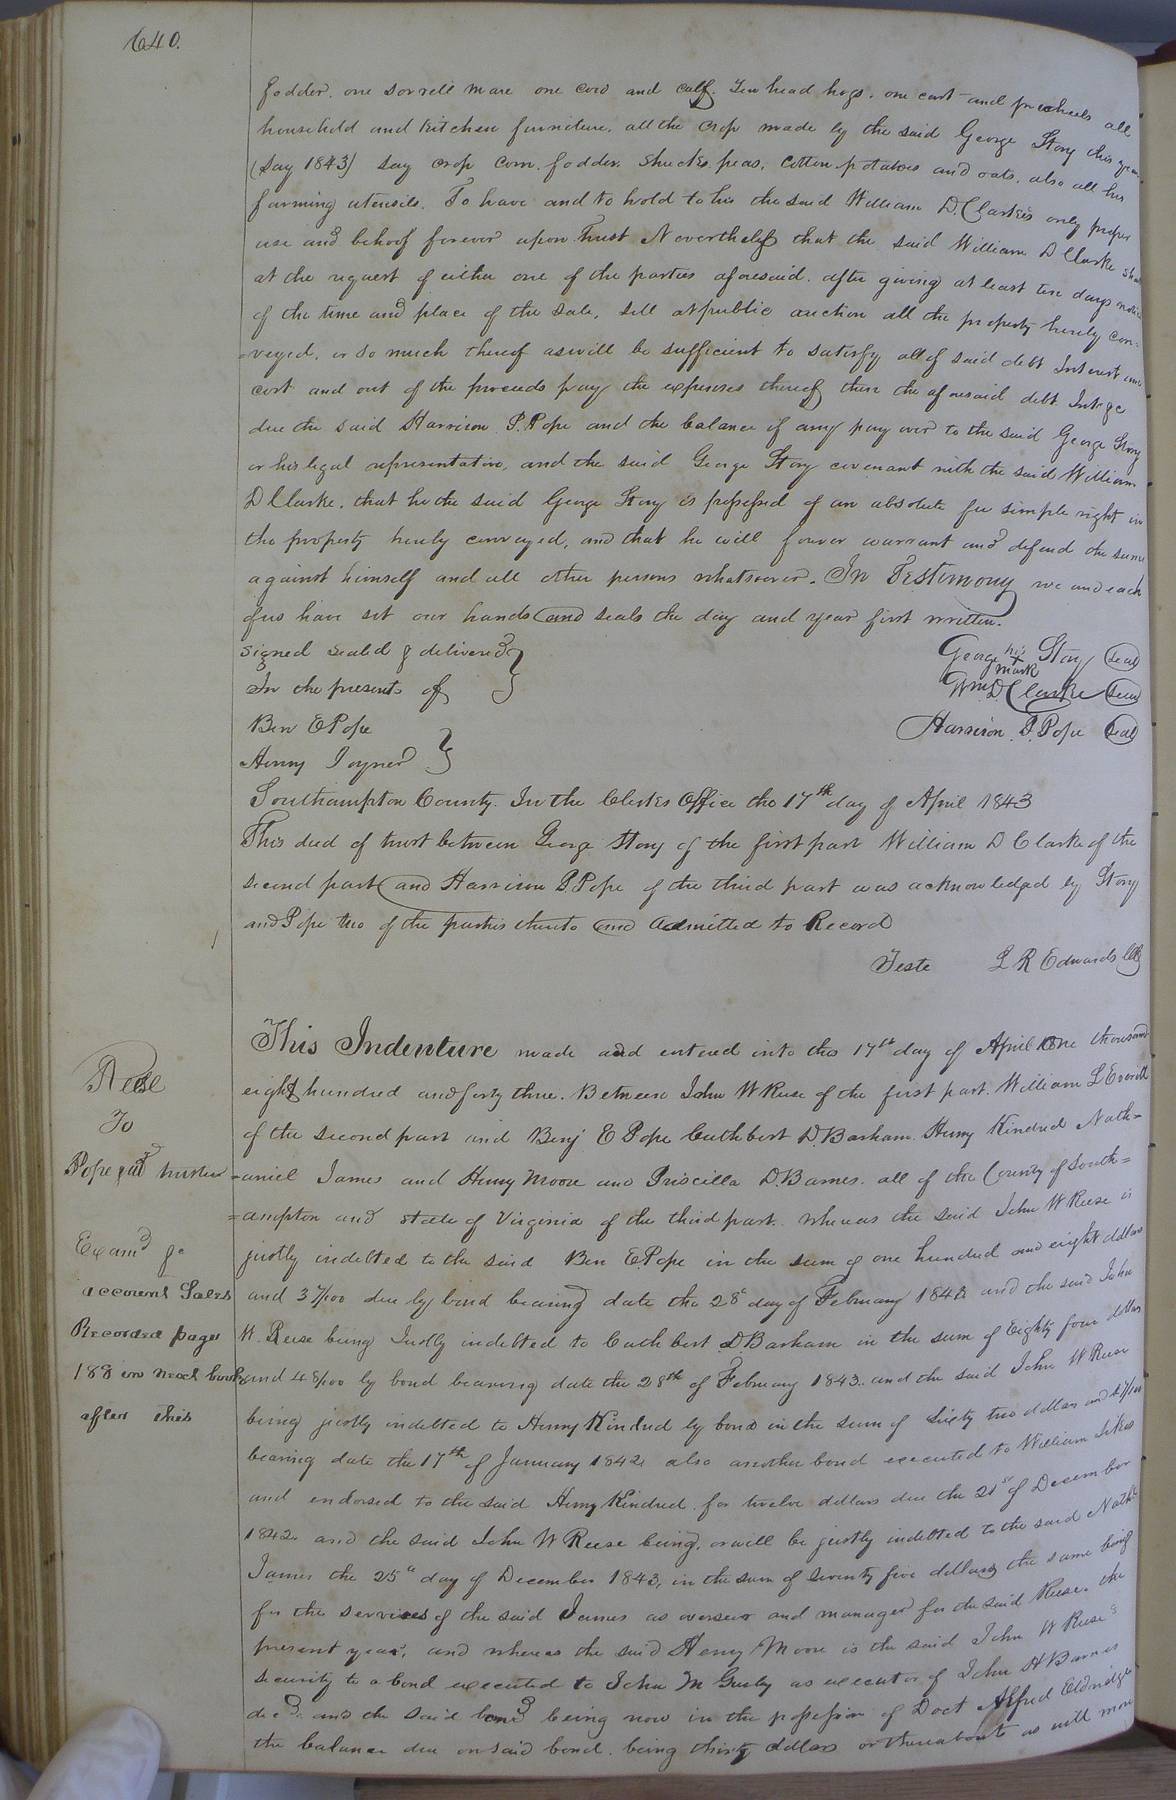 640.
fodder. one sorrell mare one cow and calf. Ten head hogs. one cart and wheels all
household and kitchen furniture. all the crop made by the said George Story this year
(say 1843) say crop corn. fodder. shucks. peas, cotton. potatoes and oats. also all his
farming utensils. To have and to hold to his the said William D. Clarke's only proper
use and behoof forever upon Trust Nevertheless that the said William D Clarke shall
at the request of either one of the parties aforesaid. after giving at least ten days notice
of the time and place of the sale, sell at public auction all the property hereby con=
=veyed, or so much thereof as will be sufficient to satisfy all of said debt Interest and
cost and out of the proceeds pay the expenses thereof then the aforesaid debt Int &c
due the said Harrison P. Pope and the balance if any pay over to the said George Story
or his legal representative, and the said George Story covenant with the said William
D Clarke. that he the said George Story is possessed of an absolute fee simple right in
the property hereby conveyed, and that he will forever warrant and defend the same
against himself and all other persons whatsoever. In Testimony we and each
of us have set our hands and seals the day and year first written.
Signed seald & delivered }
In the presents of
George his Story (seal)
+
mark
Wm D. Clarke (seal)
Ben E Pope
Harrison P. Pope (seal)
Henry Joyner }
Southampton County. In the Clerks Office the 17th day of April 1843
This deed of trust between George Story of the first part William D Clarke of the
second part and Harrison P Pope of the third part was acknowledged by Story
and Pope two of the parties thereto and admitted to Record
Teste L R Edwards Clk
Reese
To
Pope &al trustee
Examd &c
account Sales
Recorded page
188 in next book
after this
This Indenture made and entered into this 17th day of April One thousand
eight hundred and forty three. Between John W Reese of the first part. William L Everitt
of the second part and Benj E Pope Cuthbert D. Barham. Henry Kindred Nath=
=aniel James and Henry Moore and Priscilla D. Barnes. all of the County of South=
=ampton and state of Virginia of the third part. whereas the said John W Reese is
justly indebted to the said Ben E. Pope in the sum of one hundred and eight dollars
and 37/100 due by bond bearing date the 28th day of February 1842 and the said John
W. Reese being Justly indebted to Cuthbert D Barham in the sum of Eighty four dollars
and 48/100 by bond bearing date the 28th of February 1843. and the said John W Reese
being justly indebted to Henry Kindred by bond in the sum of Sixty two dollars and /100
bearing date the 17th of January 1842 also another bond executed to William Sikes
and endorsed to the said Henry Kindred. for twelve dollars due the 21st of December
1842 and the said John W Reese being, or will be justly indebted to the said Nathl
James the 25th day of December 1843, in the sum of seventy five dollars the same being
for the services of the said James as overseer and manager for the said Reese. the
present year, and whereas the said Henry Moore is the said John W Reese's
security to a bond executed to John M Gurley as executor of John H Barnes
decd. and the said bond being now in the possession of Doct Alfred Eldridge
the balance due on said bond. being thirty dollars or thereabouts as will more